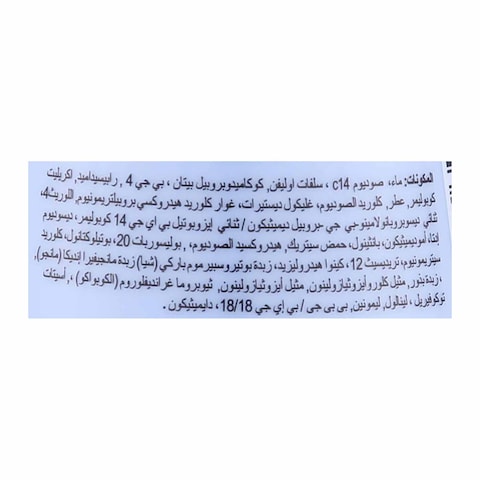 المكونات: ماء، صوديوم c14 ، سلفات اوليفن، كوكاميدوبروبيل بيتان ، بي جي 4 , رابيسيداميد, اكريليت
كوبوليمر, عطر, كلوريد الصوديوم، غليكول ديستيرات، غوار كلوريد هيدروكسي بروبيلتريمونيوم, اللوريث4,
ثنائي ديسوبروبانولامينو-بي جي -بروبيل ديميثيكون / ثنائي إيزوبوتيل بي اي جي 14 كوبوليمر، ديسوديوم
إيثا، أموديميثيكون، بانثينول، حمض سيتريك, هيدروكسيد الصوديوم، , بوليسوربات 20، بوتيلوكتانول، كلوريد
سيتريمونيوم، تريديسيث 12، كينوا هيدروليزيد، زبدة بوتيروسبيرموم باركي (شيا) زبدة مانجيفيرا إنديكا (مانجو),
، زبدة بذور, مثيل كلوروأيزوثيازولينون, مثيل أيزوثيازولينون, ثيوبروما غرانديفلوروم (الكوبواكو) ،, أسيتات
توكوفيريل ، لينالول, ليمونين, بي بي جي / بي إي جي 18/18، دايميثيكون .